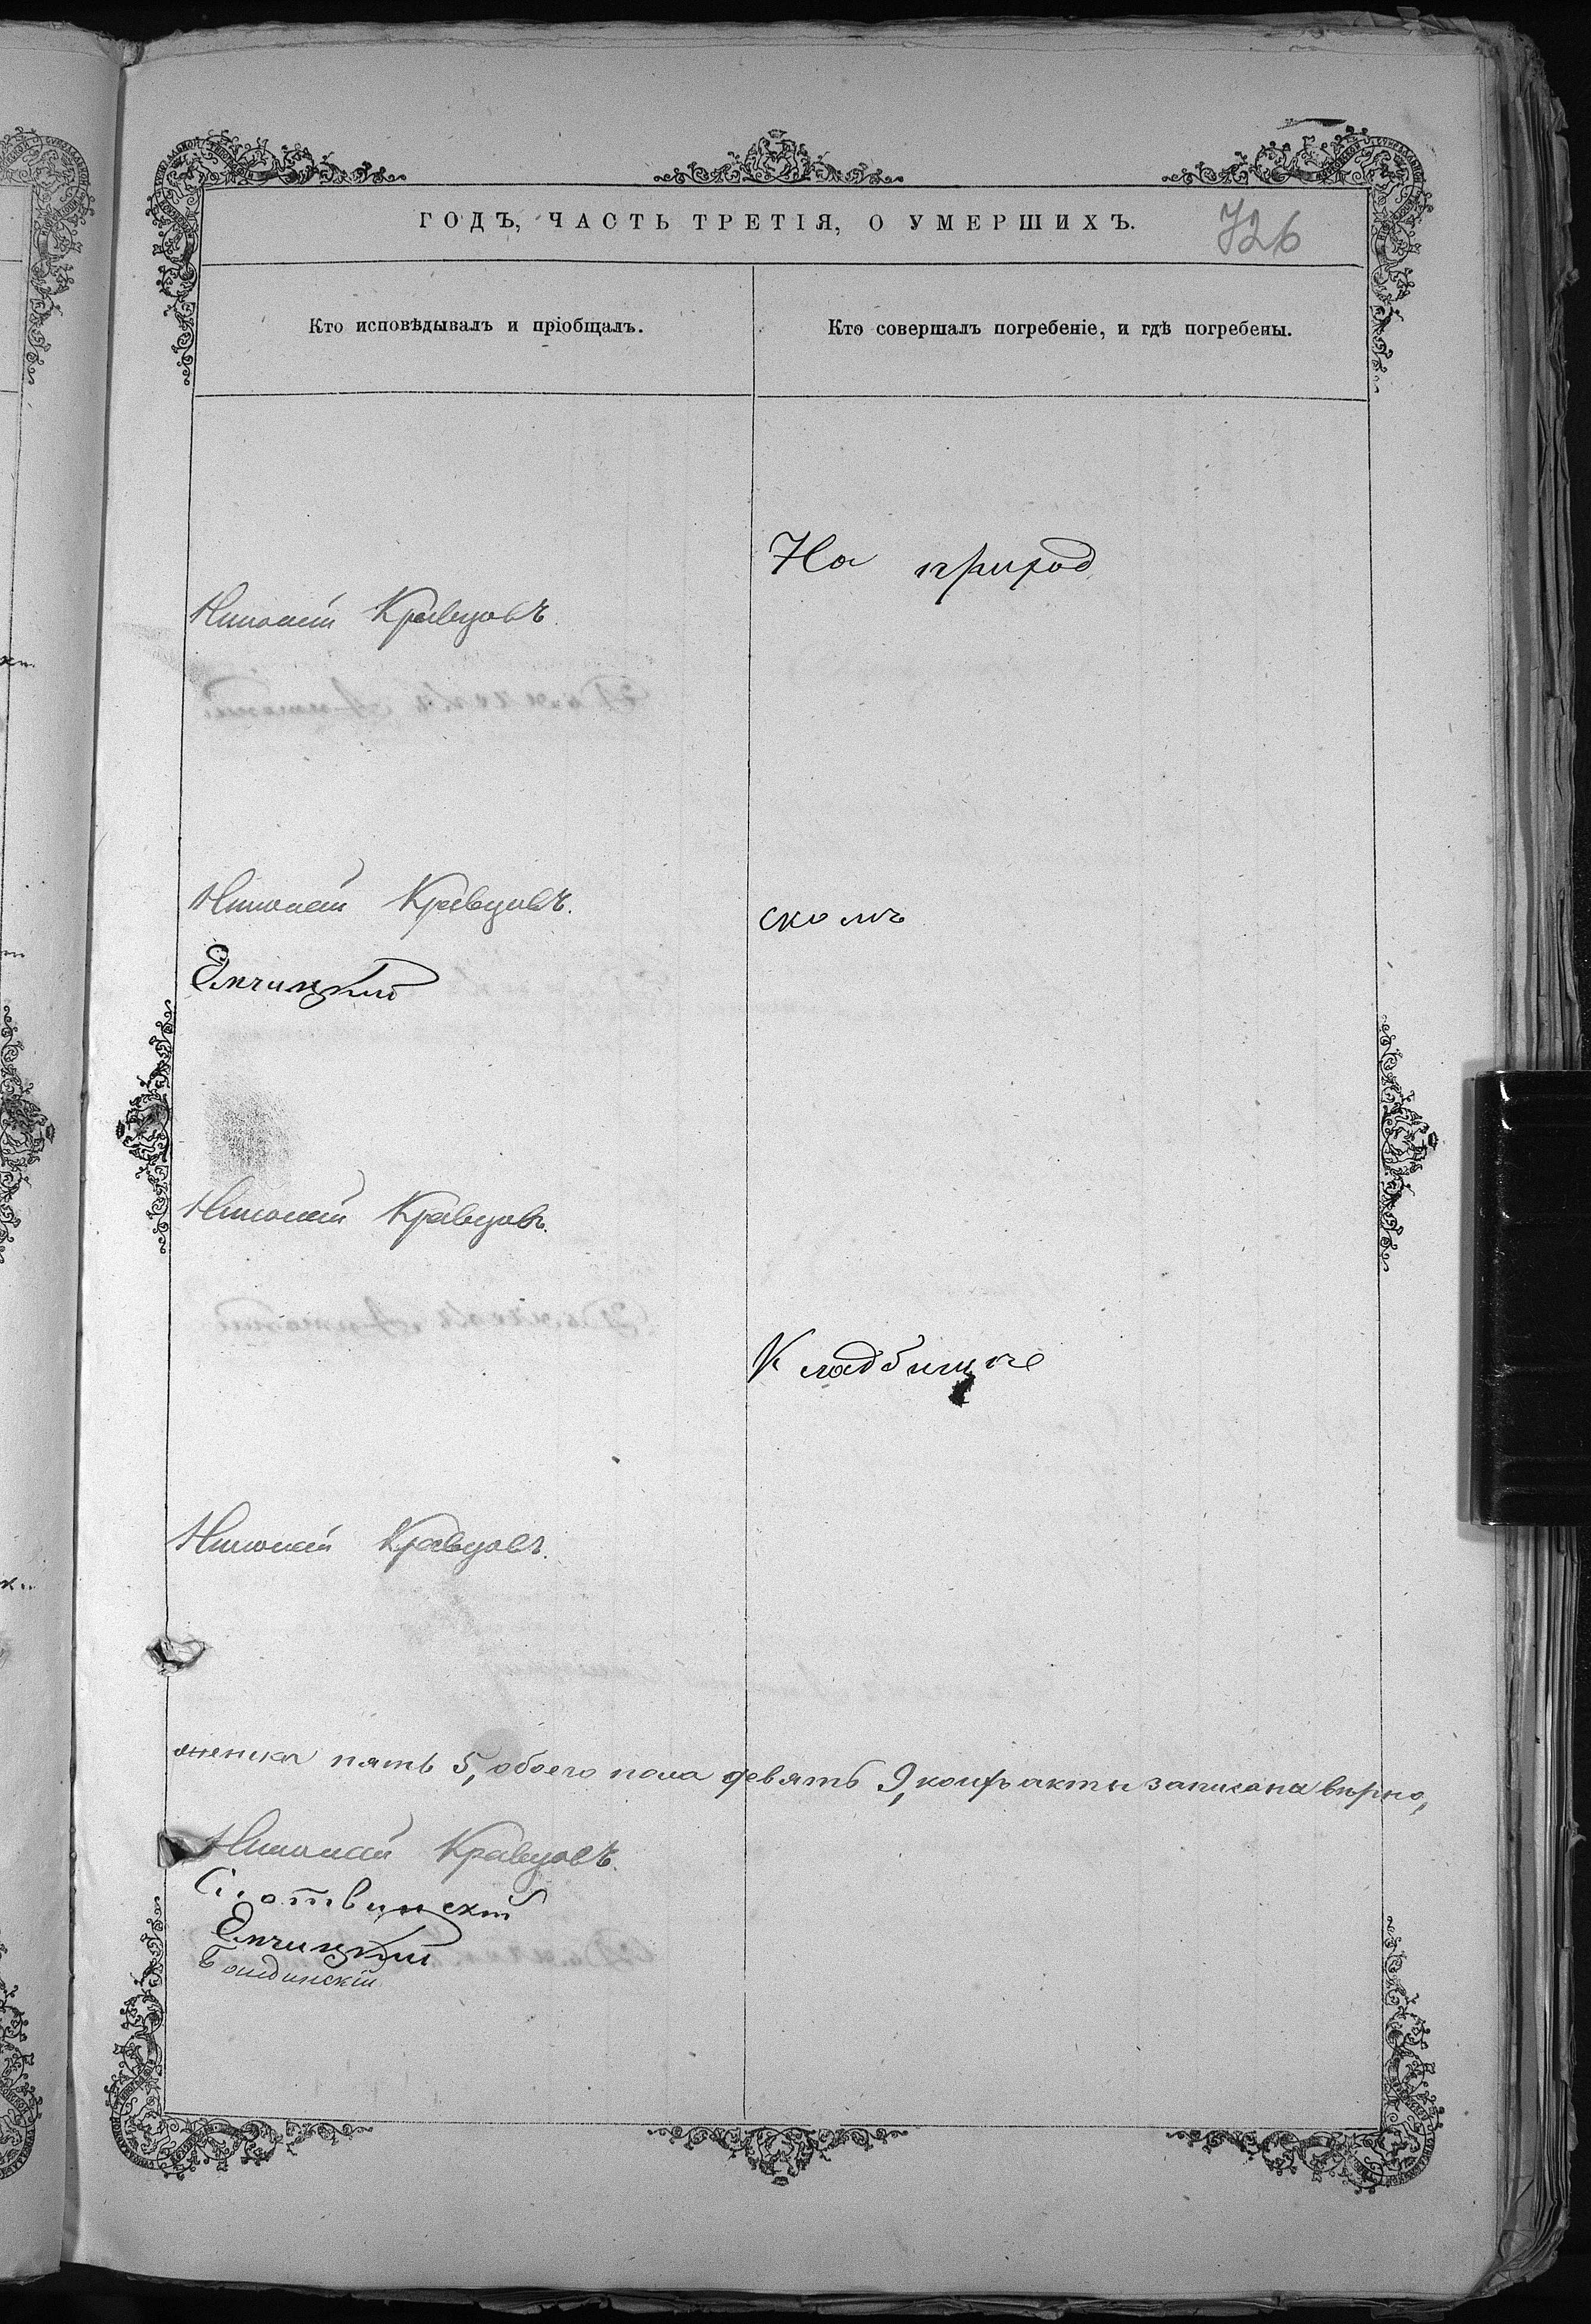 ГОДЪ, ЧАСТЬ ТРЕТІЯ, О УМЕРШИХЪ.
726
Кто исповѣдывалъ и пріобщалъ.
Кто совершалъ погребеніе, и гдѣ погребены.
На приход
Николай Кравцовъ.
Николай Кравцовъ.
скомъ
Елчицкій
Николай Кравцовъ.
Кладбищѣ
Николай Кравцовъ.
женска пять 5, обоего пола девять 9, коихъ акты записана вѣрно,
Николай Кравцовъ.
Слотвинскій
Елчицкій